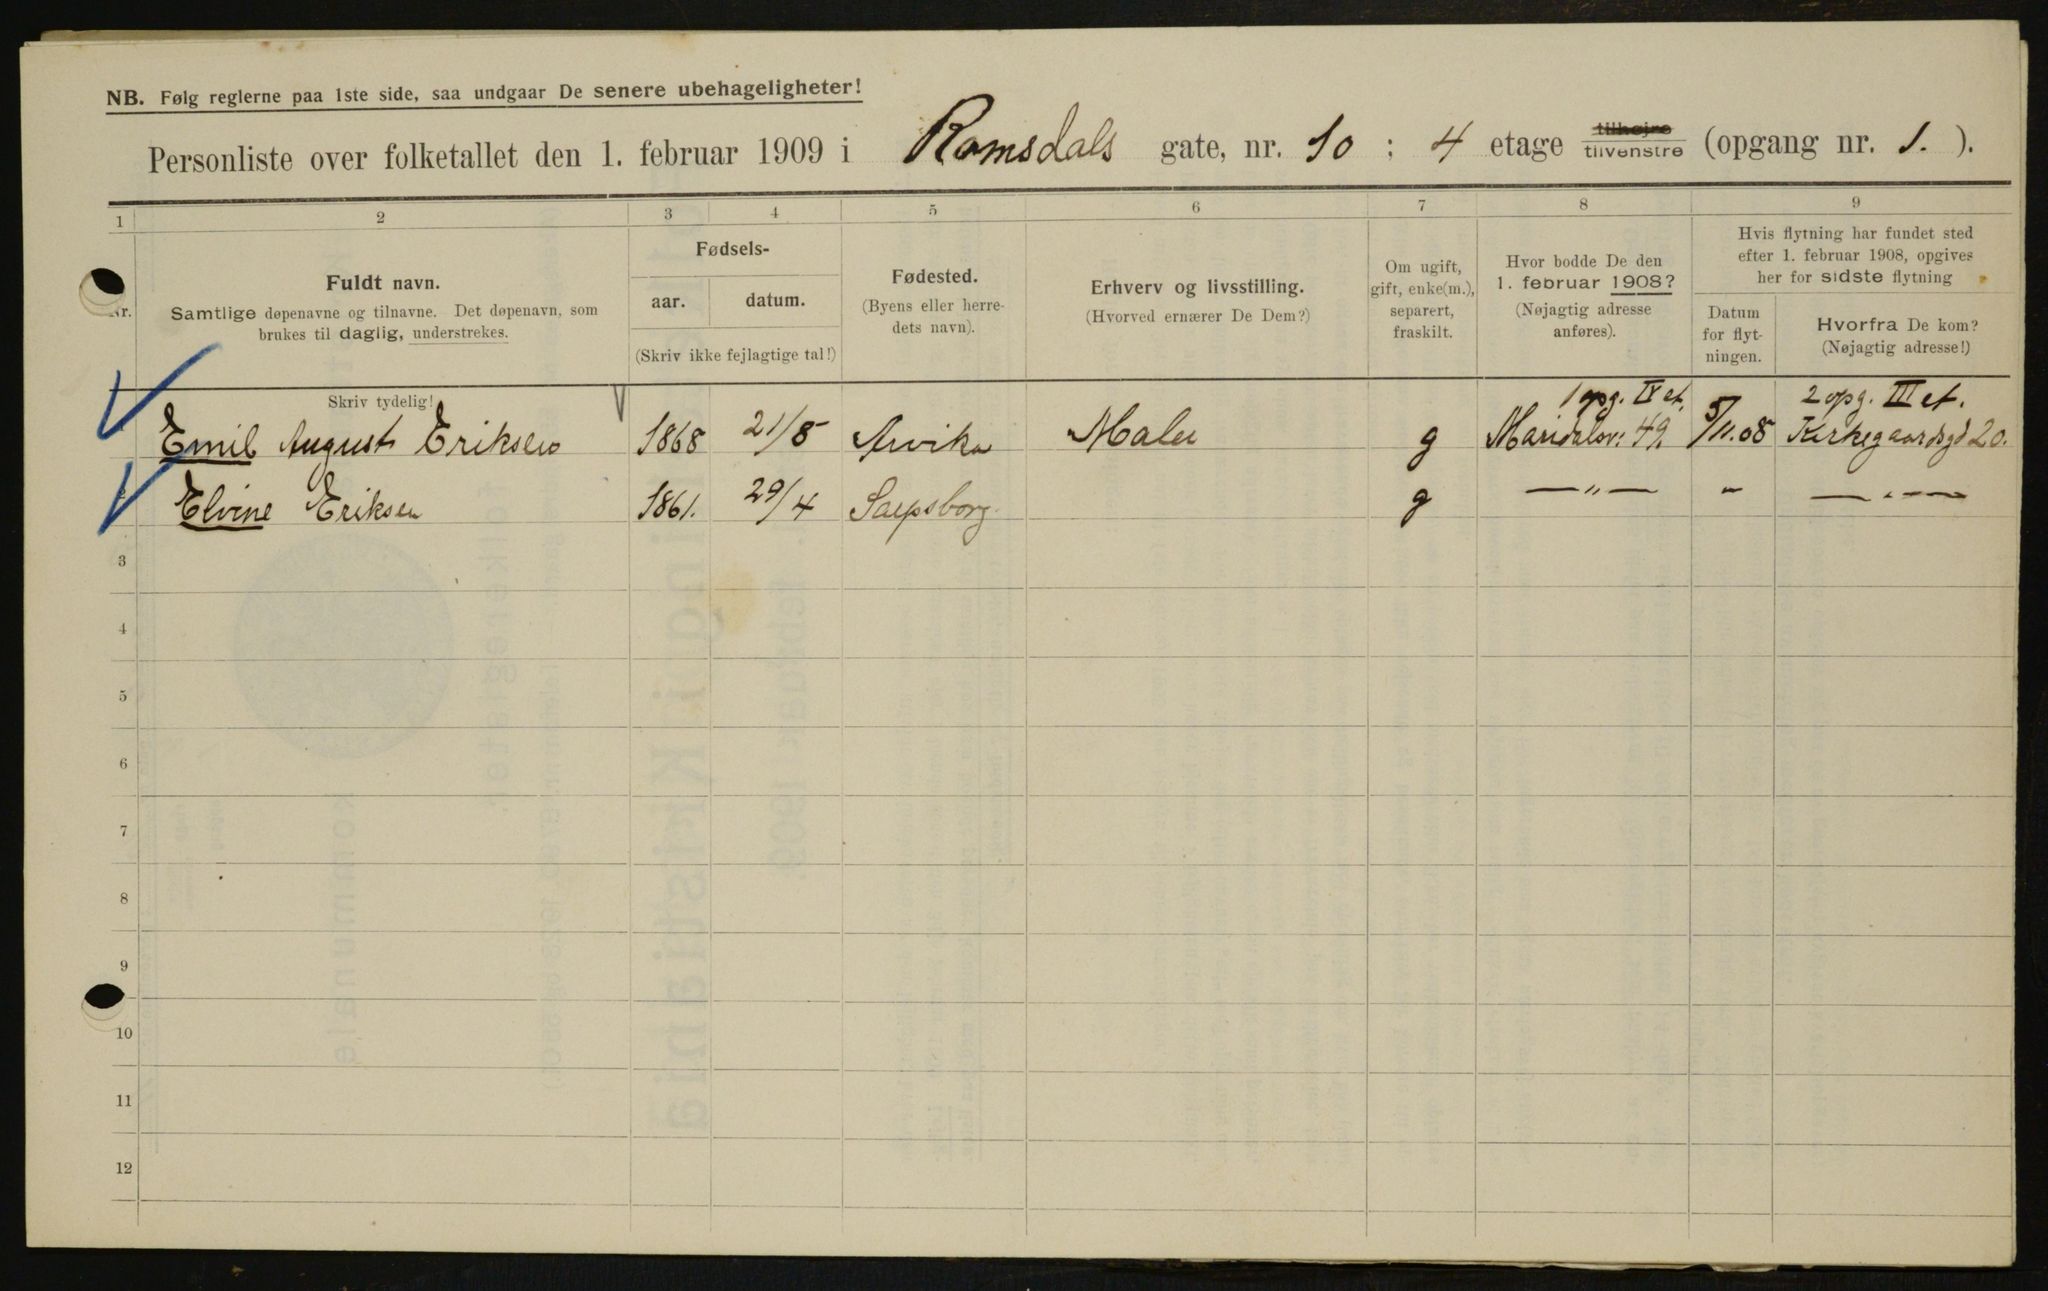 NB. Følg reglerne paa 1ste side, saa undgaar De senere ubehageligheter!
Personliste over folketallet den 1. februar 1909 i Romsdals gate, nr. 10 ; 4 etage tilhøjre tilvenstre (opgang nr. 1. ).
1 2 3 4 5 6 7 8 9
Nr.
Fuldt navn.
Samtlige døpenavne og tilnavne. Det døpenavn, som
brukes til daglig, understrekes.
Skriv tydelig!
Fødsels-
aar. datum.
(Skriv ikke fejlagtige tal!)
Fødested.
(Byens eller herre-
dets navn).
Erhverv og livsstilling.
(Hvorved ernærer De Dem?)
Om ugift,
gift, enke(m.),
separert,
fraskilt.
Hvor bodde De den
1. februar 1908?
(Nøjagtig adresse
anføres).
Hvis flytning har fundet sted
efter 1. februar 1908, opgives
her for sidste flytning
Datum
for flyt-
ningen.
Hvorfra De kom?
(Nøjagtig adresse!)
1 opg. IV et. 2 opg. III et.
Emil August Eriksen 1868 21/8 Arvika Maler g Maridalsv: 49 5/11.08 Kirkegaardsgd 20.
Elvine Eriksen 1861. 29/4 Sarpsborg. g —"— " —"—
3
4
5
6
7
8
9
10
11
12